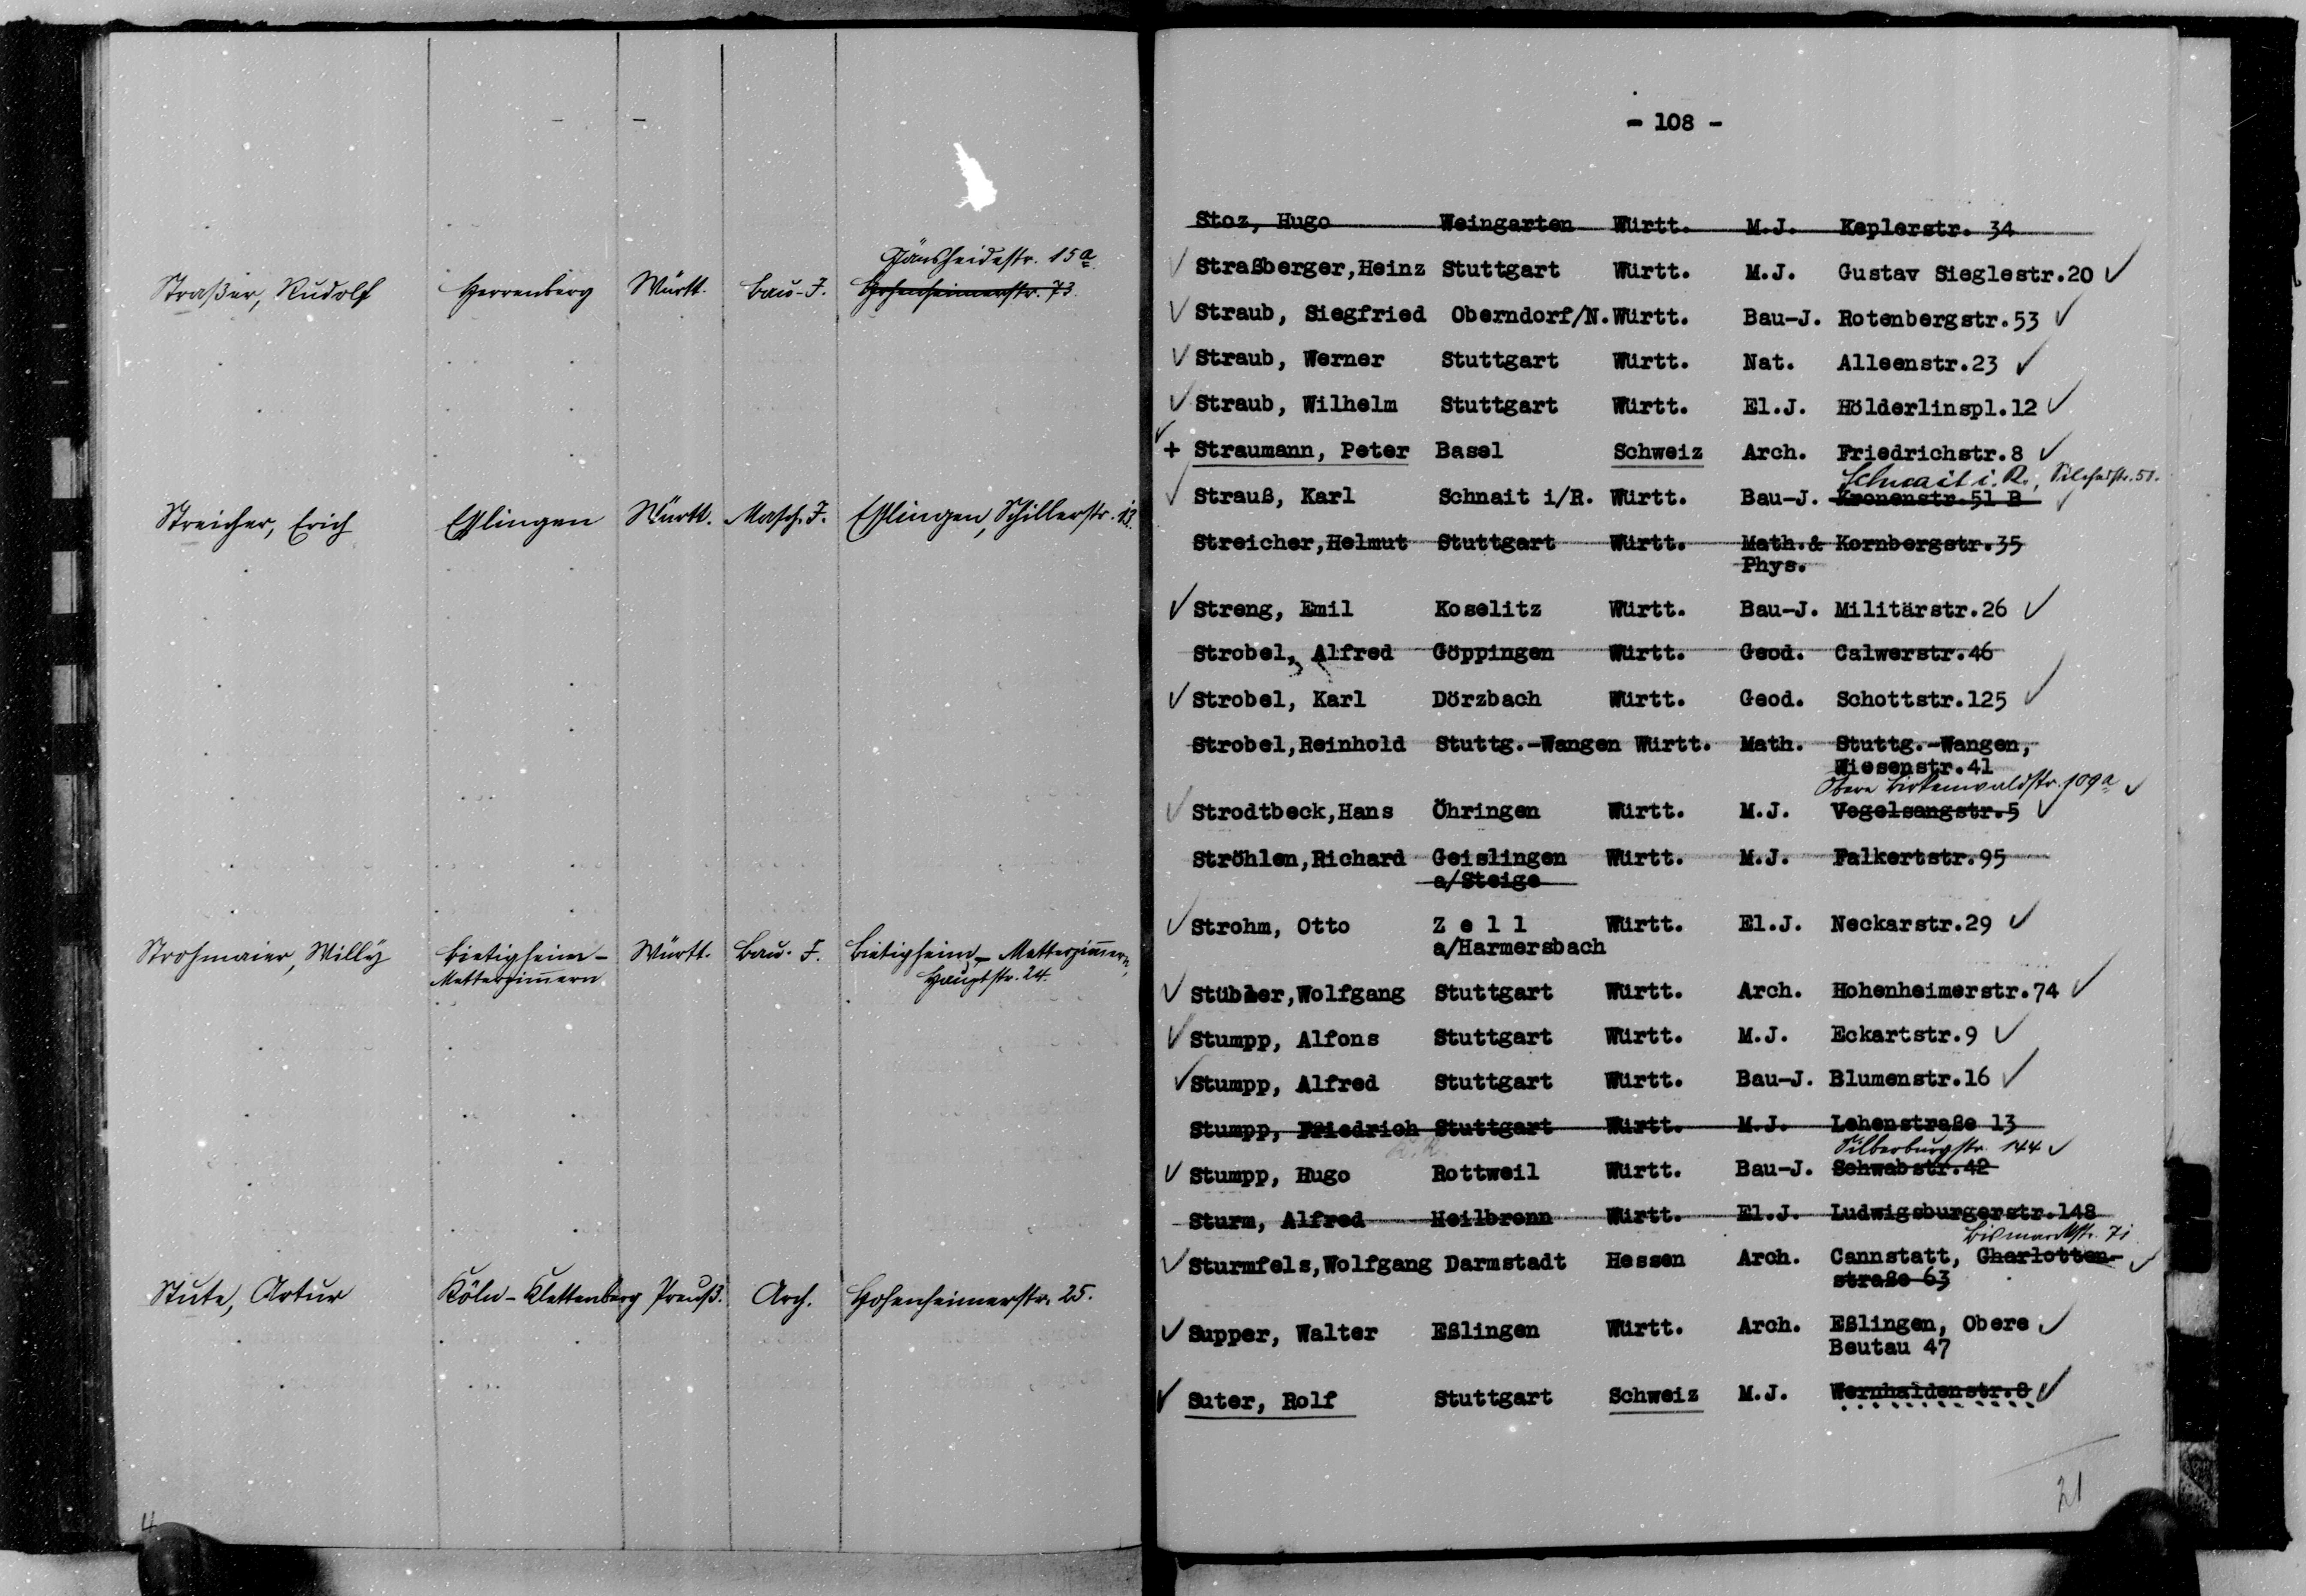 Gänsheidestr. 15a
Straßer, Rudolf Herrenberg Württ. Bau-I. Hohenheimerstr. 73
Streicher, Erich Esslingen Württ. Masch. I. Esslingen, Schillerstr. 13.
Strohmaier, Willy Bietigheim- Württ. Bau-I. Bietigheim-Metterzimmern,
Metterzimmern Hauptstr. 24.
Stute, Artur Köln-Klettenberg Preuß. Arch. Hohenheimerstr. 25.
4
- 108 -
Stoz, Hugo Weingarten Württ. M.J. Keplerstr. 34
Straßberger,Heinz Stuttgart Württ. M.J. Gustav Sieglestr.20 ✓
Straub, Siegfried Oberndorf/N.Württ. Bau-J. Rotenbergstr.53 ✓
Straub, Werner Stuttgart Württ. Nat. Alleenstr.23 ✓
Straub, Wilhelm Stuttgart Württ. El.J. Hölderlinspl.12 ✓
+ Straumann, Peter Basel Schweiz Arch. Friedrichstr.8 ✓
Schnait i. R., Silcherstr. 51.
Strauß, Karl Schnait i/R. Württ. Bau-J. Kronenstr.51 B ✓
Streicher,Helmut Stuttgart Württ. Math.& Kornbergstr.35
Phys.
Streng, Emil Koselitz Württ. Bau-J. Militärstr.26 ✓
Strobel, Alfred Göppingen Württ. Geod. Calwerstr.46
Strobel, Karl Dörzbach Württ. Geod. Schottstr.125 ✓
Strobel,Reinhold Stuttg.-Wangen Württ. Math. Stuttg.-Wangen,
Wiesenstr.41
Obere Birkenwaldstr. 109a ✓
Strodtbeck,Hans Öhringen Württ. M.J. Vogelsangstr.5 ✓
Ströhlen,Richard Geislingen Württ. M.J. Falkertstr.95
a/Steige
Strohm, Otto Z e l l Württ. El.J. Neckarstr.29 ✓
a/Harmersbach
Stübler,Wolfgang Stuttgart Württ. Arch. Hohenheimerstr.74 ✓
Stumpp, Alfons Stuttgart Württ. M.J. Eckartstr.9 ✓
Stumpp, Alfred Stuttgart Württ. Bau-J. Blumenstr.16 ✓
Stumpp, Friedrich Stuttgart Württ. M.J. Lehenstraße 13
Silberburgstr. 144 ✓
Stumpp, Hugo Rottweil Württ. Bau-J. Schwabstr.42
Sturm, Alfred Heilbronn Württ. El.J. Ludwigsburgerstr.148
Bismarckstr. 71
Sturmfels,Wolfgang Darmstadt Hessen Arch. Cannstatt, Charlotten-
straße 63
Supper, Walter Eßlingen Württ. Arch. Eßlingen, Obere ✓
Beutau 47
Suter, Rolf Stuttgart Schweiz M.J. Wernhaldenstr.8 ✓
21